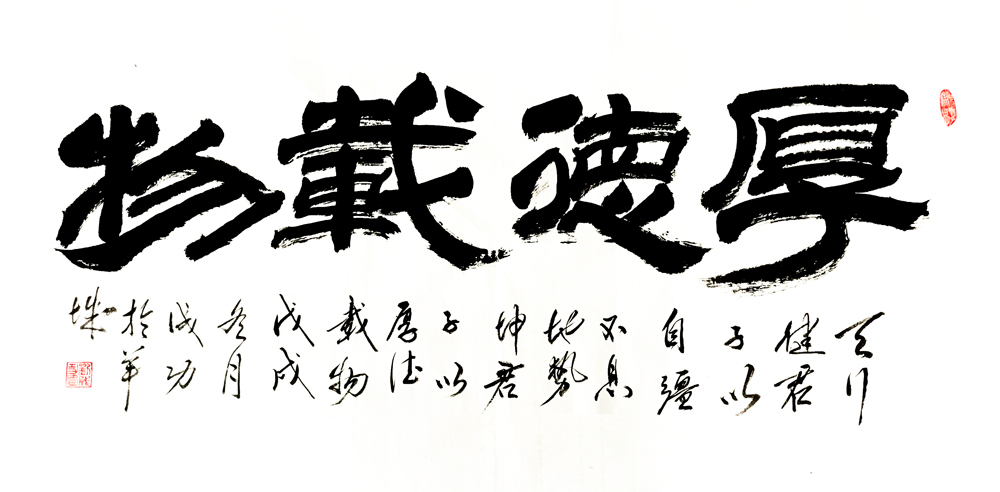 厚德載物
天行
健君
子以
自疆
不息
地勢
坤君
子以
厚德
載物
戊戌
冬月
成功
於羊
城